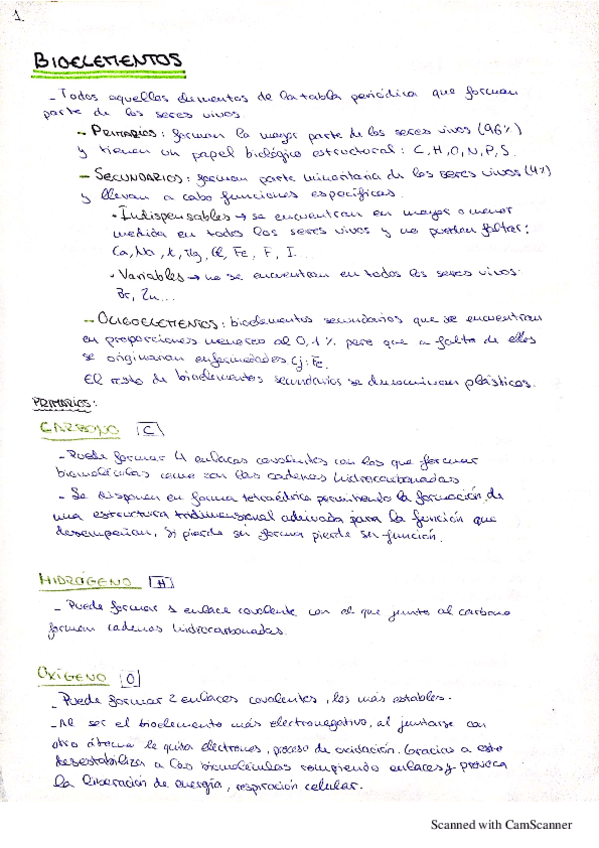 1.
BIOELEMENTOS
- Todos aquellos elementos de la tabla periódica que forman
parte de los seres vivos.
- PRIMARIOS: forman la mayor parte de los seres vivos (96%)
y tienen un papel biológico estructural: C, H, O, N, P, S.
- SECUNDARIOS: forman parte minoritaria de los seres vivos (4%)
y llevan a cabo funciones específicas.
• Indispensables → se encuentran en mayor o menor
medida en todos los seres vivos y no pueden faltar:
Ca, Na, K, Mg, Cl, Fe, F, I...
• Variables → no se encuentran en todos los seres vivos:
Br, Zn...
- OLIGOELEMENTOS: bioelementos secundarios que se encuentran
en proporciones menores al 0,1% pero que a falta de ellos
se originarian enfermedades Cj: Fe.
El resto de bioelementos secundarios se denominan plásticos.
PRIMARIOS:
CARBONO [C]
- Puede formar 4 enlaces covalentes con los que formar
biomoléculas como son las cadenas hidrocarbonadas
- Se disponen en forma tetraédrica permitiendo la formación de
una estructura tridimensional adecuada para la función que
desempeñan, si pierde su forma pierde su función.
HIDRÓGENO [H]
- Puede formar 1 enlace covalente con el que junto al carbono
forman cadenas hidrocarbonadas.
OXÍGENO [O]
- Puede formar 2 enlaces covalentes, los más estables.
- Al ser el bioelemento más electronegativo, al juntarse con
otro átomo le quita electrones, proceso de oxidación. Gracias a esto
desestabiliza a las biomoléculas rompiendo enlaces y provoca
la liberación de energía, respiración celular.
Scanned with CamScanner